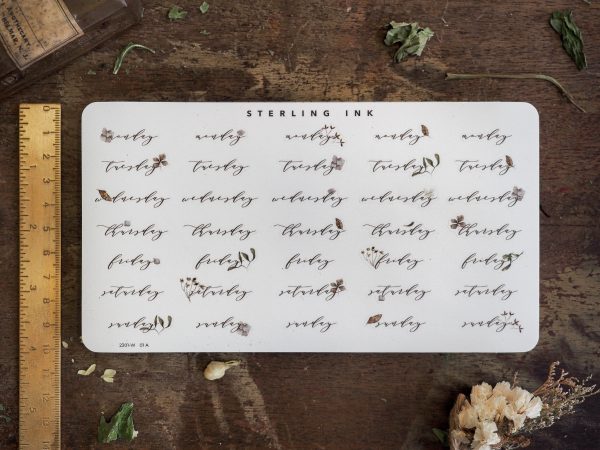 STERLING INK
monday monday monday monday monday
tuesday tuesday tuesday tuesday tuesday
wednesday wednesday wednesday wednesday wednesday
thursday thursday thursday thursday thursday
friday friday friday friday friday
saturday saturday saturday saturday saturday
sunday sunday sunday sunday sunday
2301-W 01A
0
1
2
3
4
5